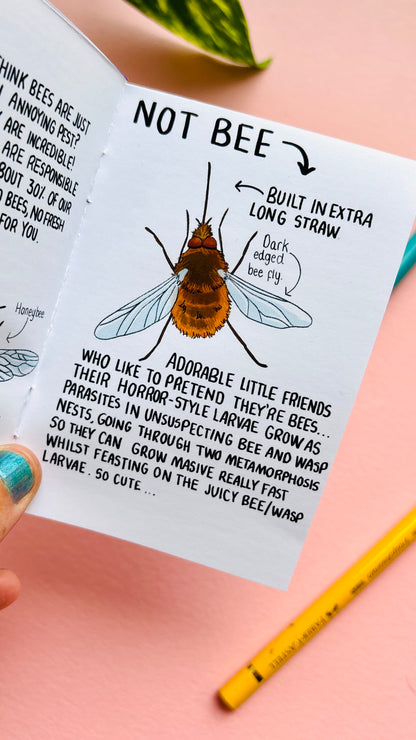 THINK BEES ARE JUST
ANNOYING PEST?
ARE INCREDIBLE!
ARE RESPONSIBLE
BOUT 30% OF OUR
BEES, NO FRESH
FOR YOU.
Honeybee
NOT BEE
BUILT IN EXTRA
LONG STRAW
Dark
edged
bee fly.
ADORABLE LITTLE FRIENDS
WHO LIKE TO PRETEND THEY'RE BEES...
THEIR HORROR-STYLE LARVAE GROW AS
PARASITES IN UNSUSPECTING BEE AND WASP
NESTS, GOING THROUGH TWO METAMORPHOSIS
SO THEY CAN GROW MASIVE REALLY FAST
WHILST FEASTING ON THE JUICY BEE/WASP
LARVAE. SO CUTE...